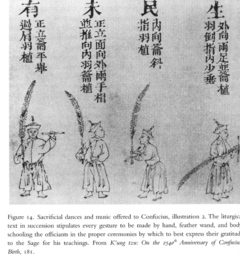 生
羽倒指內少垂
民
內向籥斜
指羽植
未
正立面向外兩手相
並推向內羽籥植
有
正立籥平舉
過肩羽植
Figure 14. Sacrificial dances and music offered to Confucius, illustration 2. The liturgica
text in succession stipulates every gesture to be made by hand, feather wand, and body
schooling the officiants in the proper ceremonies by which to best express their gratitud
to the Sage for his teachings. From K'ung tzu: On the 2540th Anniversary of Confuciu
Birth, 181.